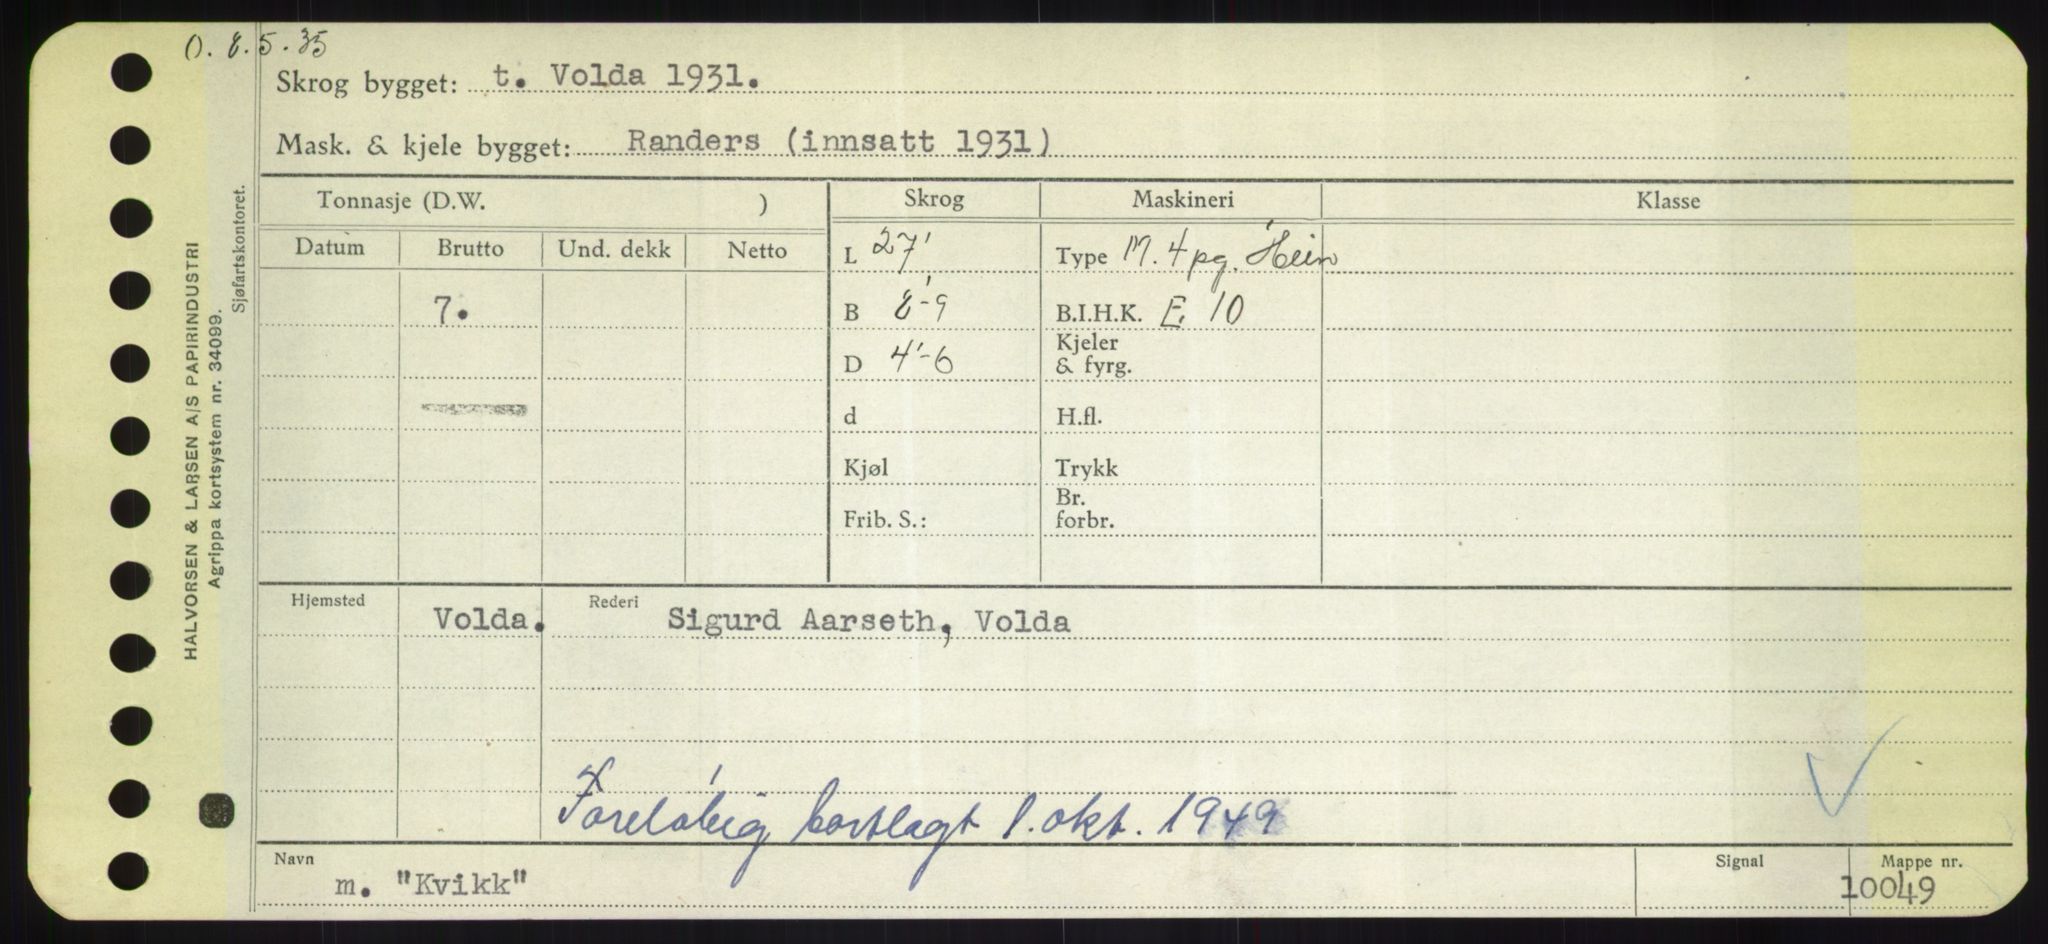 O. 8.5.35
Skrog bygget: t. Volda 1931.
Mask. & kjele bygget: Randers (innsatt 1931)
Tonnasje (D.W. ) Skrog Maskineri Klasse
Datum Brutto Und. dekk Netto L 27' Type M. 4 pg. Hein
7. B 8'-9 B.I.H.K. E. 10
D 4'-6 Kjeler & fyrg.
d H.fl.
Kjøl Trykk
Frib. S.: Br. forbr.
Hjemsted Volda. Rederi Sigurd Aarseth, Volda
Foreløbig bortlagt 1. okt. 1949
Navn m. "Kvikk" Signal Mappe nr. 10049
HALVORSEN & LARSEN A/S PAPIRINDUSTRI
Agrippa kortsystem nr. 34099.
Sjøfartskontoret.